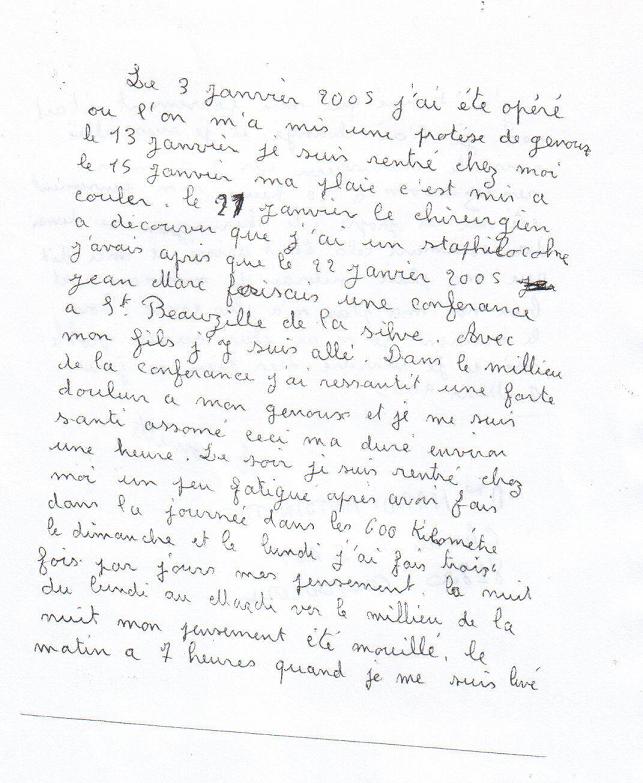 Le 3 Janvier 2005 j'ai été opéré
ou l'on m'a mis une protése de genoux
le 13 Janvier je suis rentré chez moi
le 15 Janvier ma plaie c'est mis a
couler. le 21 Janvier le chirurgien
a découver que j'ai un staphilocohe
j'avais apris que le 22 Janvier 2005
Jean Marc faisais une conferance
a St Beauzille de la silve. Avec
mon fils j'y suis allé. Dans le millieu
de la conferance j'ai ressantit une forte
douleur a mon genoux et je me suis
santi assomé ceci ma duré environ
une heure. Le soir je suis rentré chez
moi un peu fatigue après avoir fais
dans la journée dans les 600 Kilométre
le dimanche et le lundi j'ai fais trois
fois par jours mes pensement. la nuit
du lundi au Mardi ver le millieu de la
nuit mon pensement été mouillé. le
matin a 7 heures quand je me suis levé